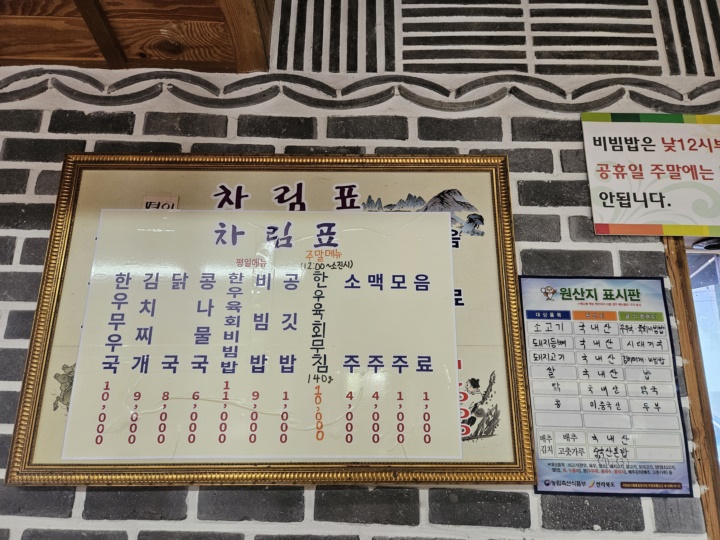 차림표
평일
차림표
평일메뉴
주말메뉴
(12:00~소진시)
한우무우국 10,000
김치찌개 9,000
닭국 8,000
콩나물국 6,000
한우육회비빔밥 11,000
비빔밥 9,000
공깃밥 1,000
한우육회무침 140g
소주 4,000
맥주 4,000
모주
음료
비빔밥은 낮12시부
공휴일 주말에는
안됩니다.
원산지 표시판
대상품목
소고기 국내산
돼지등뼈 국내산 시래기국
돼지고기 국내산
쌀 국내산 밥
닭 국내산 닭국
콩 두부
배추김치 배추 국내산
고춧가루
농림축산식품부 전라북도